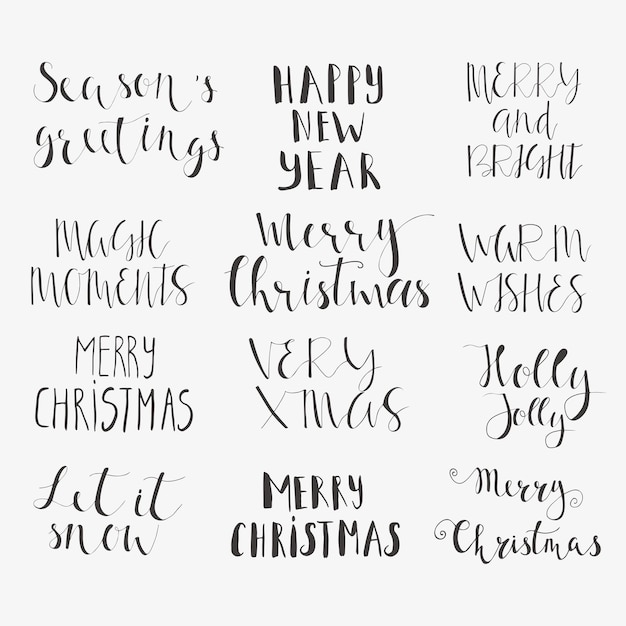 Season's
greetings
HAPPY
NEW
YEAR
MERRY
and
BRIGHT
MAGIC
MOMENTS
Merry
Christmas
WARM
WISHES
MERRY
CHRiSTMAS
VERY
XMas
Holly
Jolly
Let it
snow
MERRY
CHRiSTMAS
Merry
Christmas